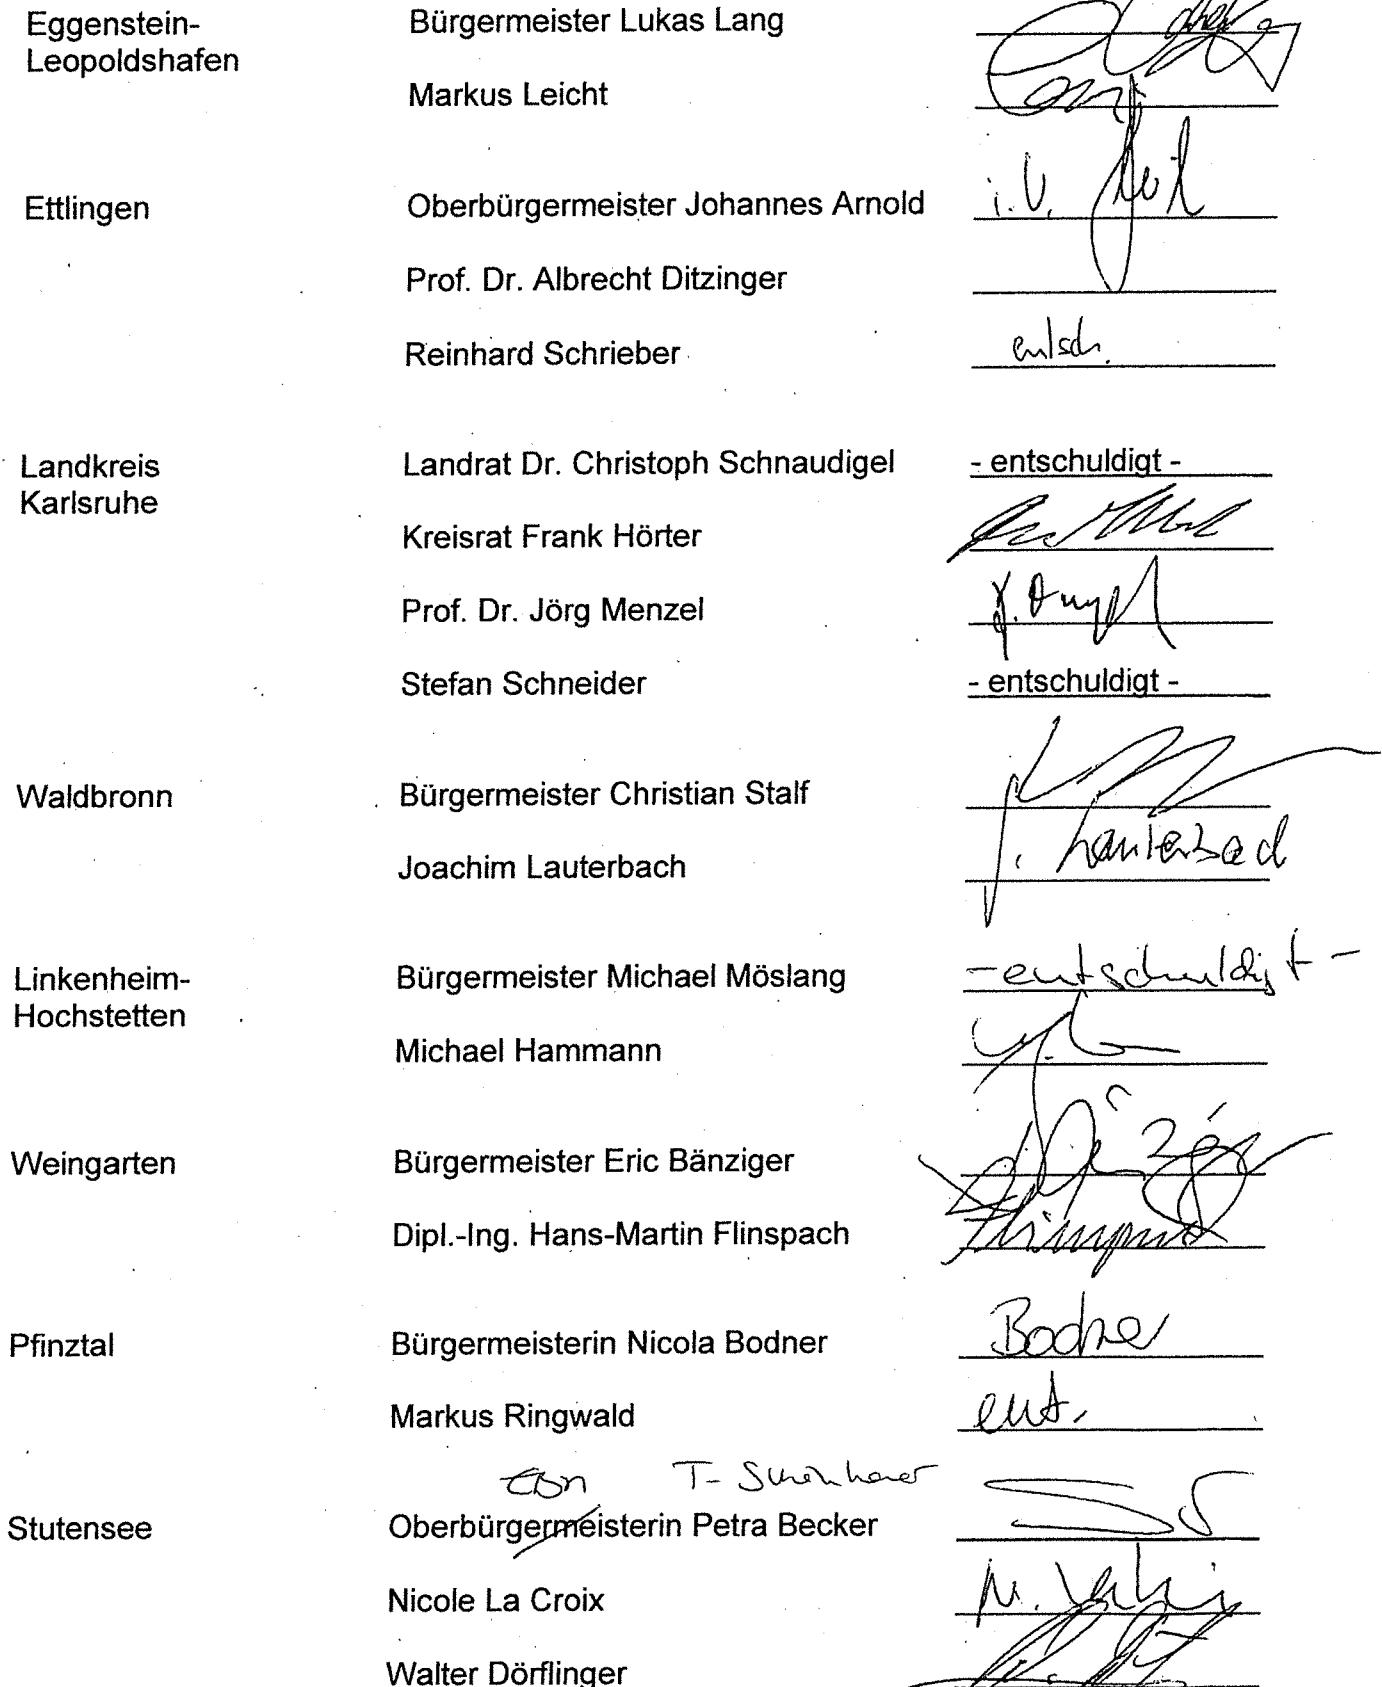 Eggenstein- Bürgermeister Lukas Lang
Leopoldshafen
Markus Leicht
Ettlingen Oberbürgermeister Johannes Arnold i.V.
Prof. Dr. Albrecht Ditzinger
Reinhard Schrieber entsch.
Landkreis Landrat Dr. Christoph Schnaudigel - entschuldigt -
Karlsruhe
Kreisrat Frank Hörter
Prof. Dr. Jörg Menzel
Stefan Schneider - entschuldigt -
Waldbronn Bürgermeister Christian Stalf
Joachim Lauterbach J. Lauterbach
Linkenheim- Bürgermeister Michael Möslang - entschuldigt -
Hochstetten
Michael Hammann
Weingarten Bürgermeister Eric Bänziger
Dipl.-Ing. Hans-Martin Flinspach
Pfinztal Bürgermeisterin Nicola Bodner Bodner
Markus Ringwald ent.
Stutensee Oberbürgermeisterin Petra Becker
Nicole La Croix
Walter Dörflinger